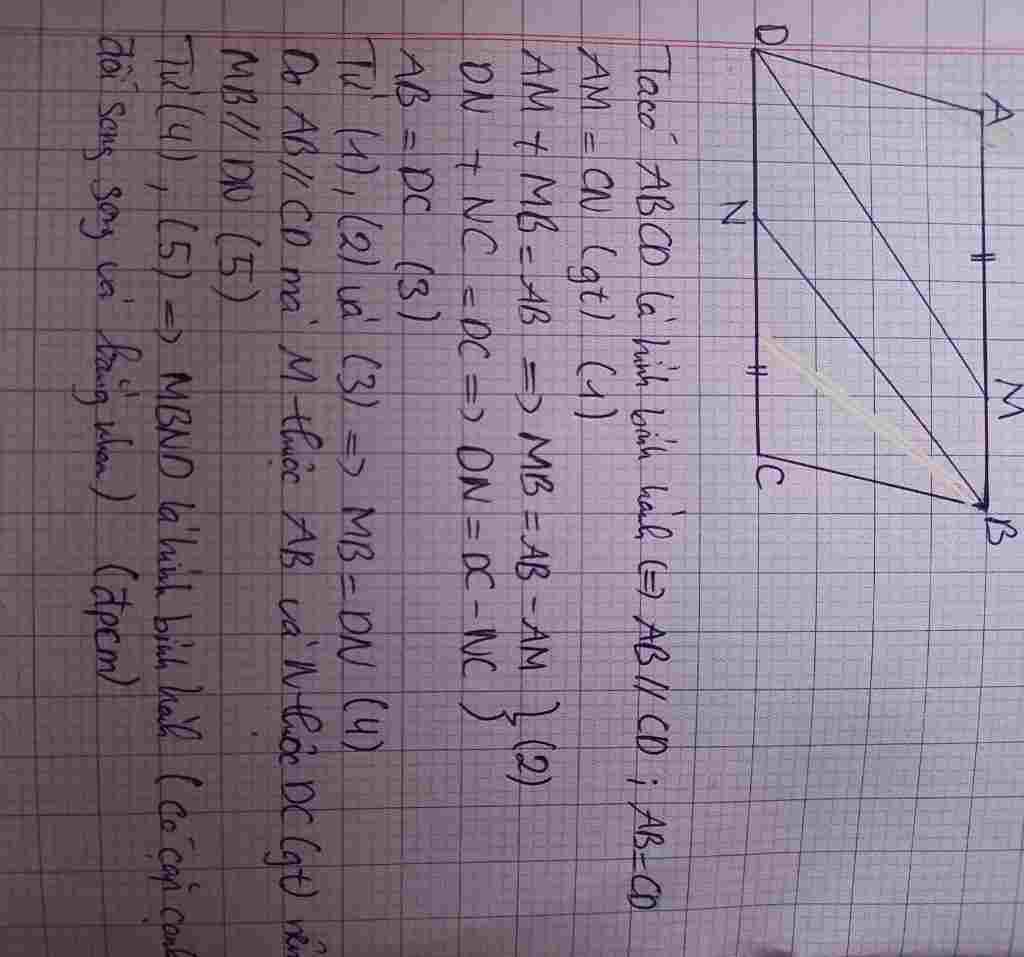 A
M
B
D
N
C
Ta có ABCD là hình bình hành (=) AB // CD ; AB = CD
AM = CN (gt) (1)
AM + MB = AB => MB = AB - AM } (2)
DN + NC = DC => DN = DC - NC }
AB = DC (3)
Từ (1), (2) và (3) => MB = DN (4)
Do AB // CD mà M thuộc AB và N thuộc DC (gt) nên
MB // DN (5)
Từ (4), (5) => MBND là hình bình hành (có cặp cạnh
đối song song và bằng nhau) (đpcm)